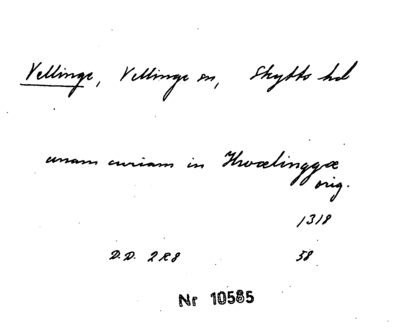 Vellinge, Vellinge sn, Skytts hd
unam curiam in Hwælinggæ
orig.
1318
D.D. 2R8 58
Nr 10585